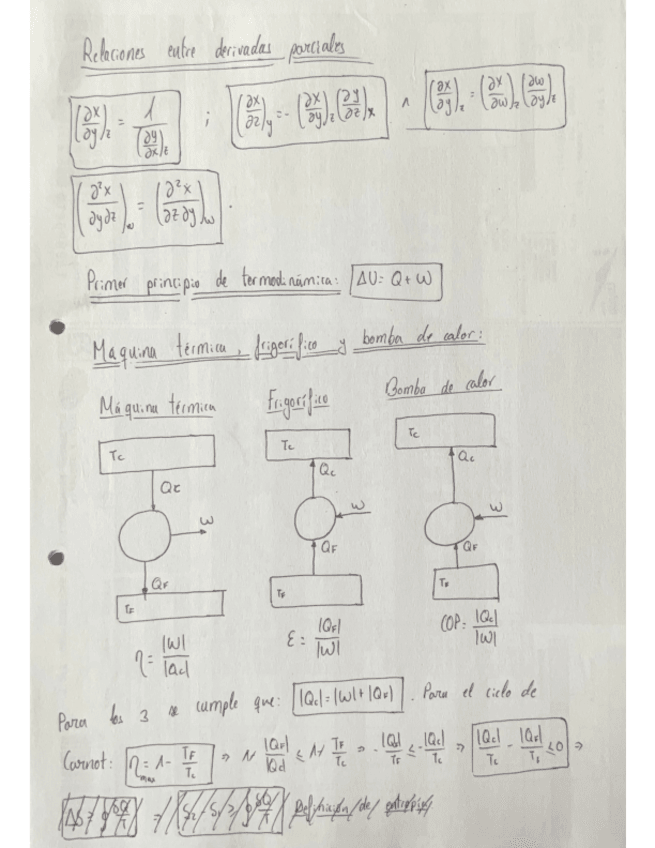 Relaciones entre derivadas parciales
(∂x/∂y)z = 1/(∂y/∂x)z ; (∂x/∂z)y = -(∂x/∂y)z (∂y/∂z)x ∧ (∂x/∂y)z = (∂x/∂w)z (∂w/∂y)z
(∂²x/∂y∂z)w = (∂²x/∂z∂y)w .
Primer principio de termodinámica: ΔU = Q + W
Máquina térmica, frigorífico y bomba de calor:
Máquina térmica Frigorífico Bomba de calor
Tc Tc Tc
Qc Qc Qc
W W W
QF QF QF
TF TF TF
η = |W|/|Qc| ε = |QF|/|W| COP = |Qc|/|W|
Para los 3 se cumple que: |Qc| = |W| + |QF| . Para el ciclo de
Carnot: ηmax = 1 - TF/Tc ⇒ 1 - |QF|/|Qc| ≤ 1 - TF/Tc ⇒ -|QF|/TF ≤ -|Qc|/Tc ⇒ |Qc|/Tc - |QF|/TF ≤ 0 ⇒
Definición de entropía